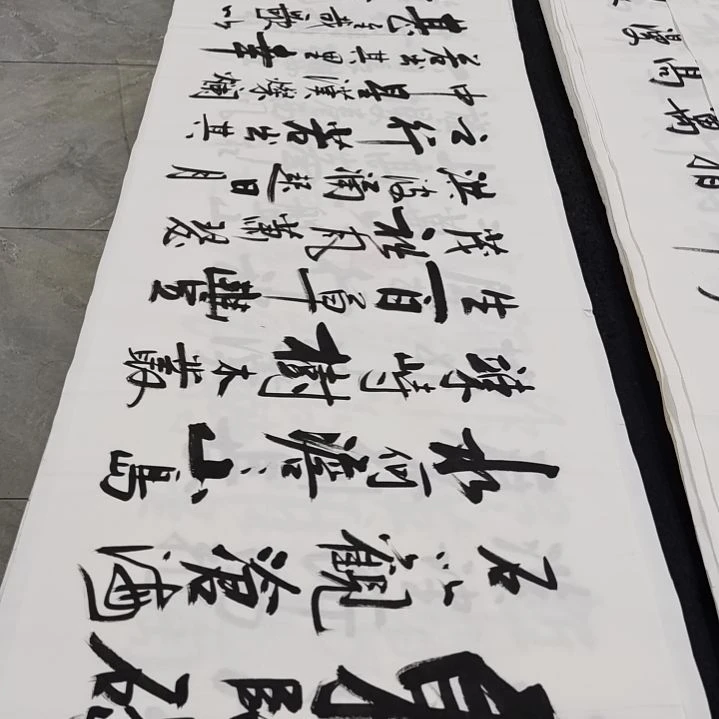 東臨碣
石以觀滄海
水何澹々山島
竦峙樹木叢
生百草豐
茂秋風蕭瑟
洪波涌起日月
之行若出其
中星漢燦爛
若出其里幸
甚至哉歌以